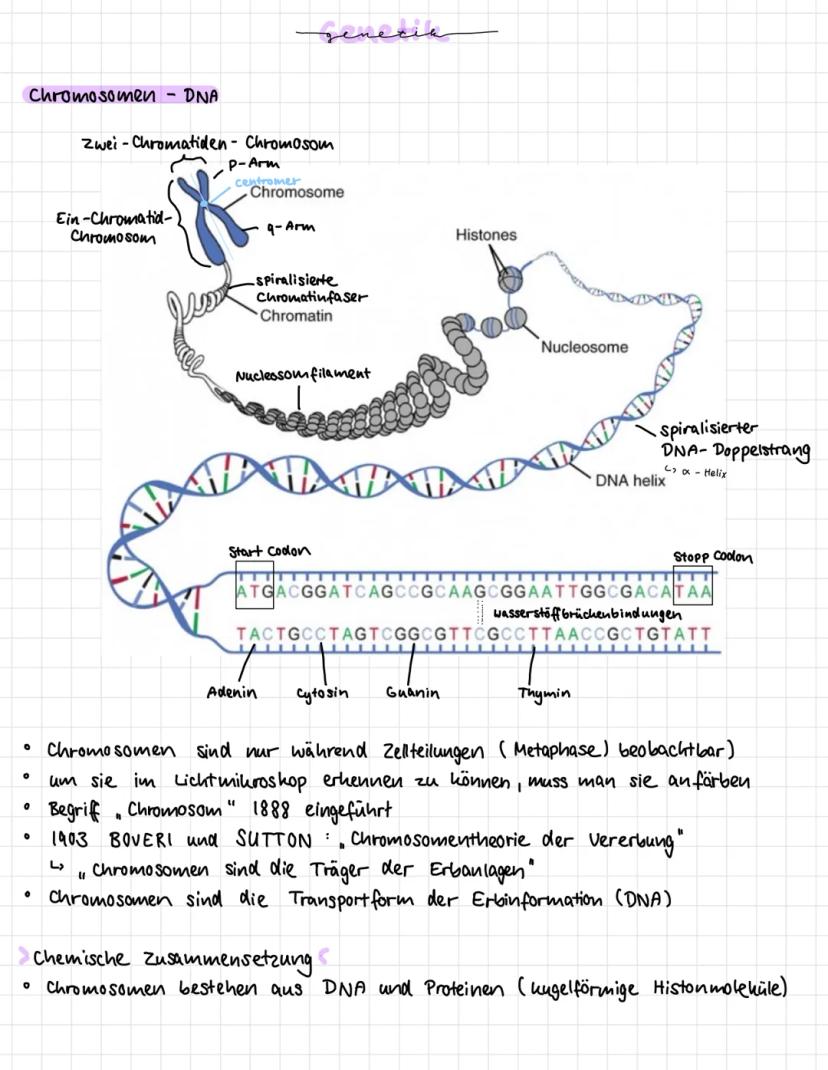 Genetik
genetik
Chromosomen - DNA
Zwei-Chromatiden-Chromosom
p-Arm
centromer
Chromosome
Ein-Chromatid-
Chromosom
q-Arm
Histones
spiralisierte
Chromatinfaser
Chromatin
Nucleosome
Nucleosomfilament
spiralisierter
DNA-Doppelstrang
↳ α-Helix
DNA helix
Start Codon
Stopp Codon
ATGACGGATCAGCCGCAAGCGGAATTGGCGACATAA
Wasserstoffbrückenbindungen
TACTGCCTAGTCGGCGTTCGCCTTAACCGCTGTATT
Adenin
Cytosin
Guanin
Thymin
• Chromosomen sind nur während Zellteilungen (Metaphase) beobachtbar)
• um sie im Lichtmikroskop erkennen zu können, muss man sie anfärben
• Begriff „Chromosom" 1888 eingeführt
• 1903 BOVERI und SUTTON : „Chromosomentheorie der Vererbung"
↳ „Chromosomen sind die Träger der Erbanlagen"
• Chromosomen sind die Transportform der Erbinformation (DNA)
Chemische Zusammensetzung
• Chromosomen bestehen aus DNA und Proteinen (kugelförmige Histonmoleküle)